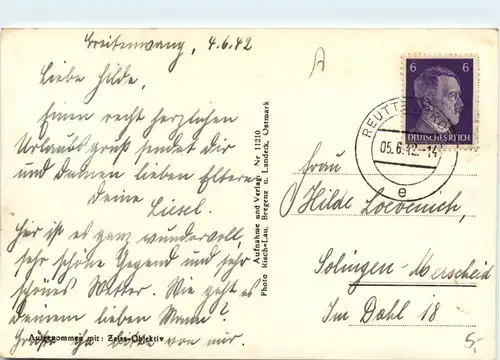 Breitenwang, 4.6.42
Liebe Hilde,
Einen recht herzlichen
Urlaubsgruß sendet dir
und Deinen lieben Eltern
deine
Liesel.
Hier ist es ganz wundervoll,
sehr schöne Gegend und sehr
schönes Wetter. Wie geht es
deinem lieben Mann?
Grüße ihn bitte von mir.
Aufgenommen mit: Zeiss-Objektiv
Aufnahme und Verlag: Nr 11210
Photo Risch-Lau, Bregenz u. Landeck, Ostmark
6 6
DEUTSCHES REICH
REUTTE
05.6.42.-14
e
Frau
Hilde Loevenich,
Solingen-Merscheid
Im Dahl 18
5,-